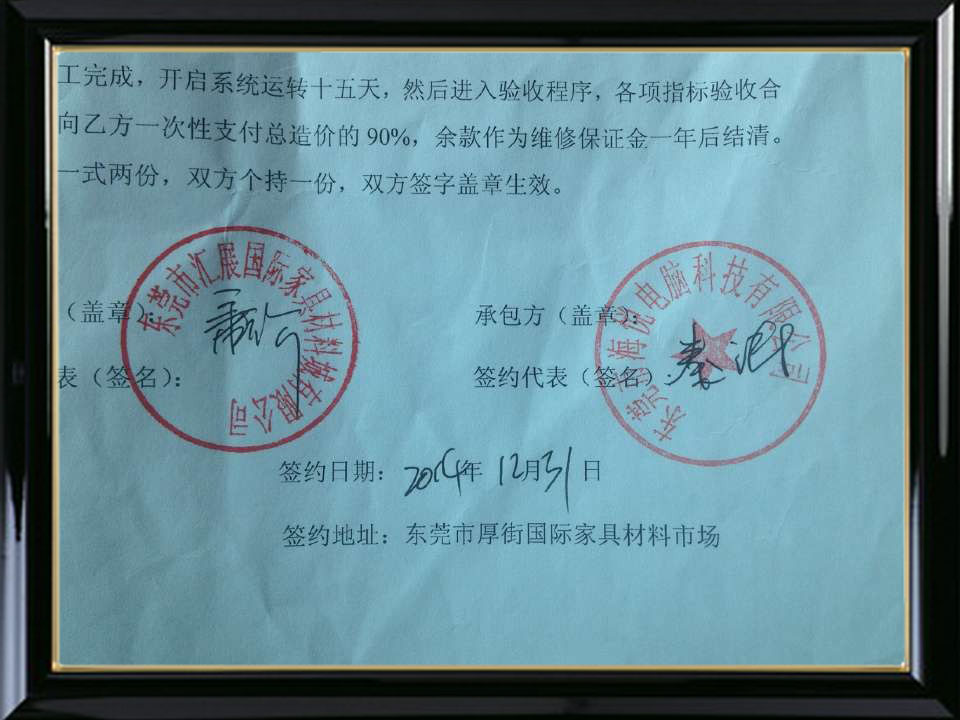 工完成，开启系统运转十五天，然后进入验收程序，各项指标验收合
向乙方一次性支付总造价的90%，余款作为维修保证金一年后结清。
一式两份，双方个持一份，双方签字盖章生效。
东莞市汇展国际家具材料城有限公司
东莞市海悦电脑科技有限公司
（盖章）：
承包方（盖章）：
表（签名）：
签约代表（签名）：
签约日期：2014年12月31日
签约地址：东莞市厚街国际家具材料市场